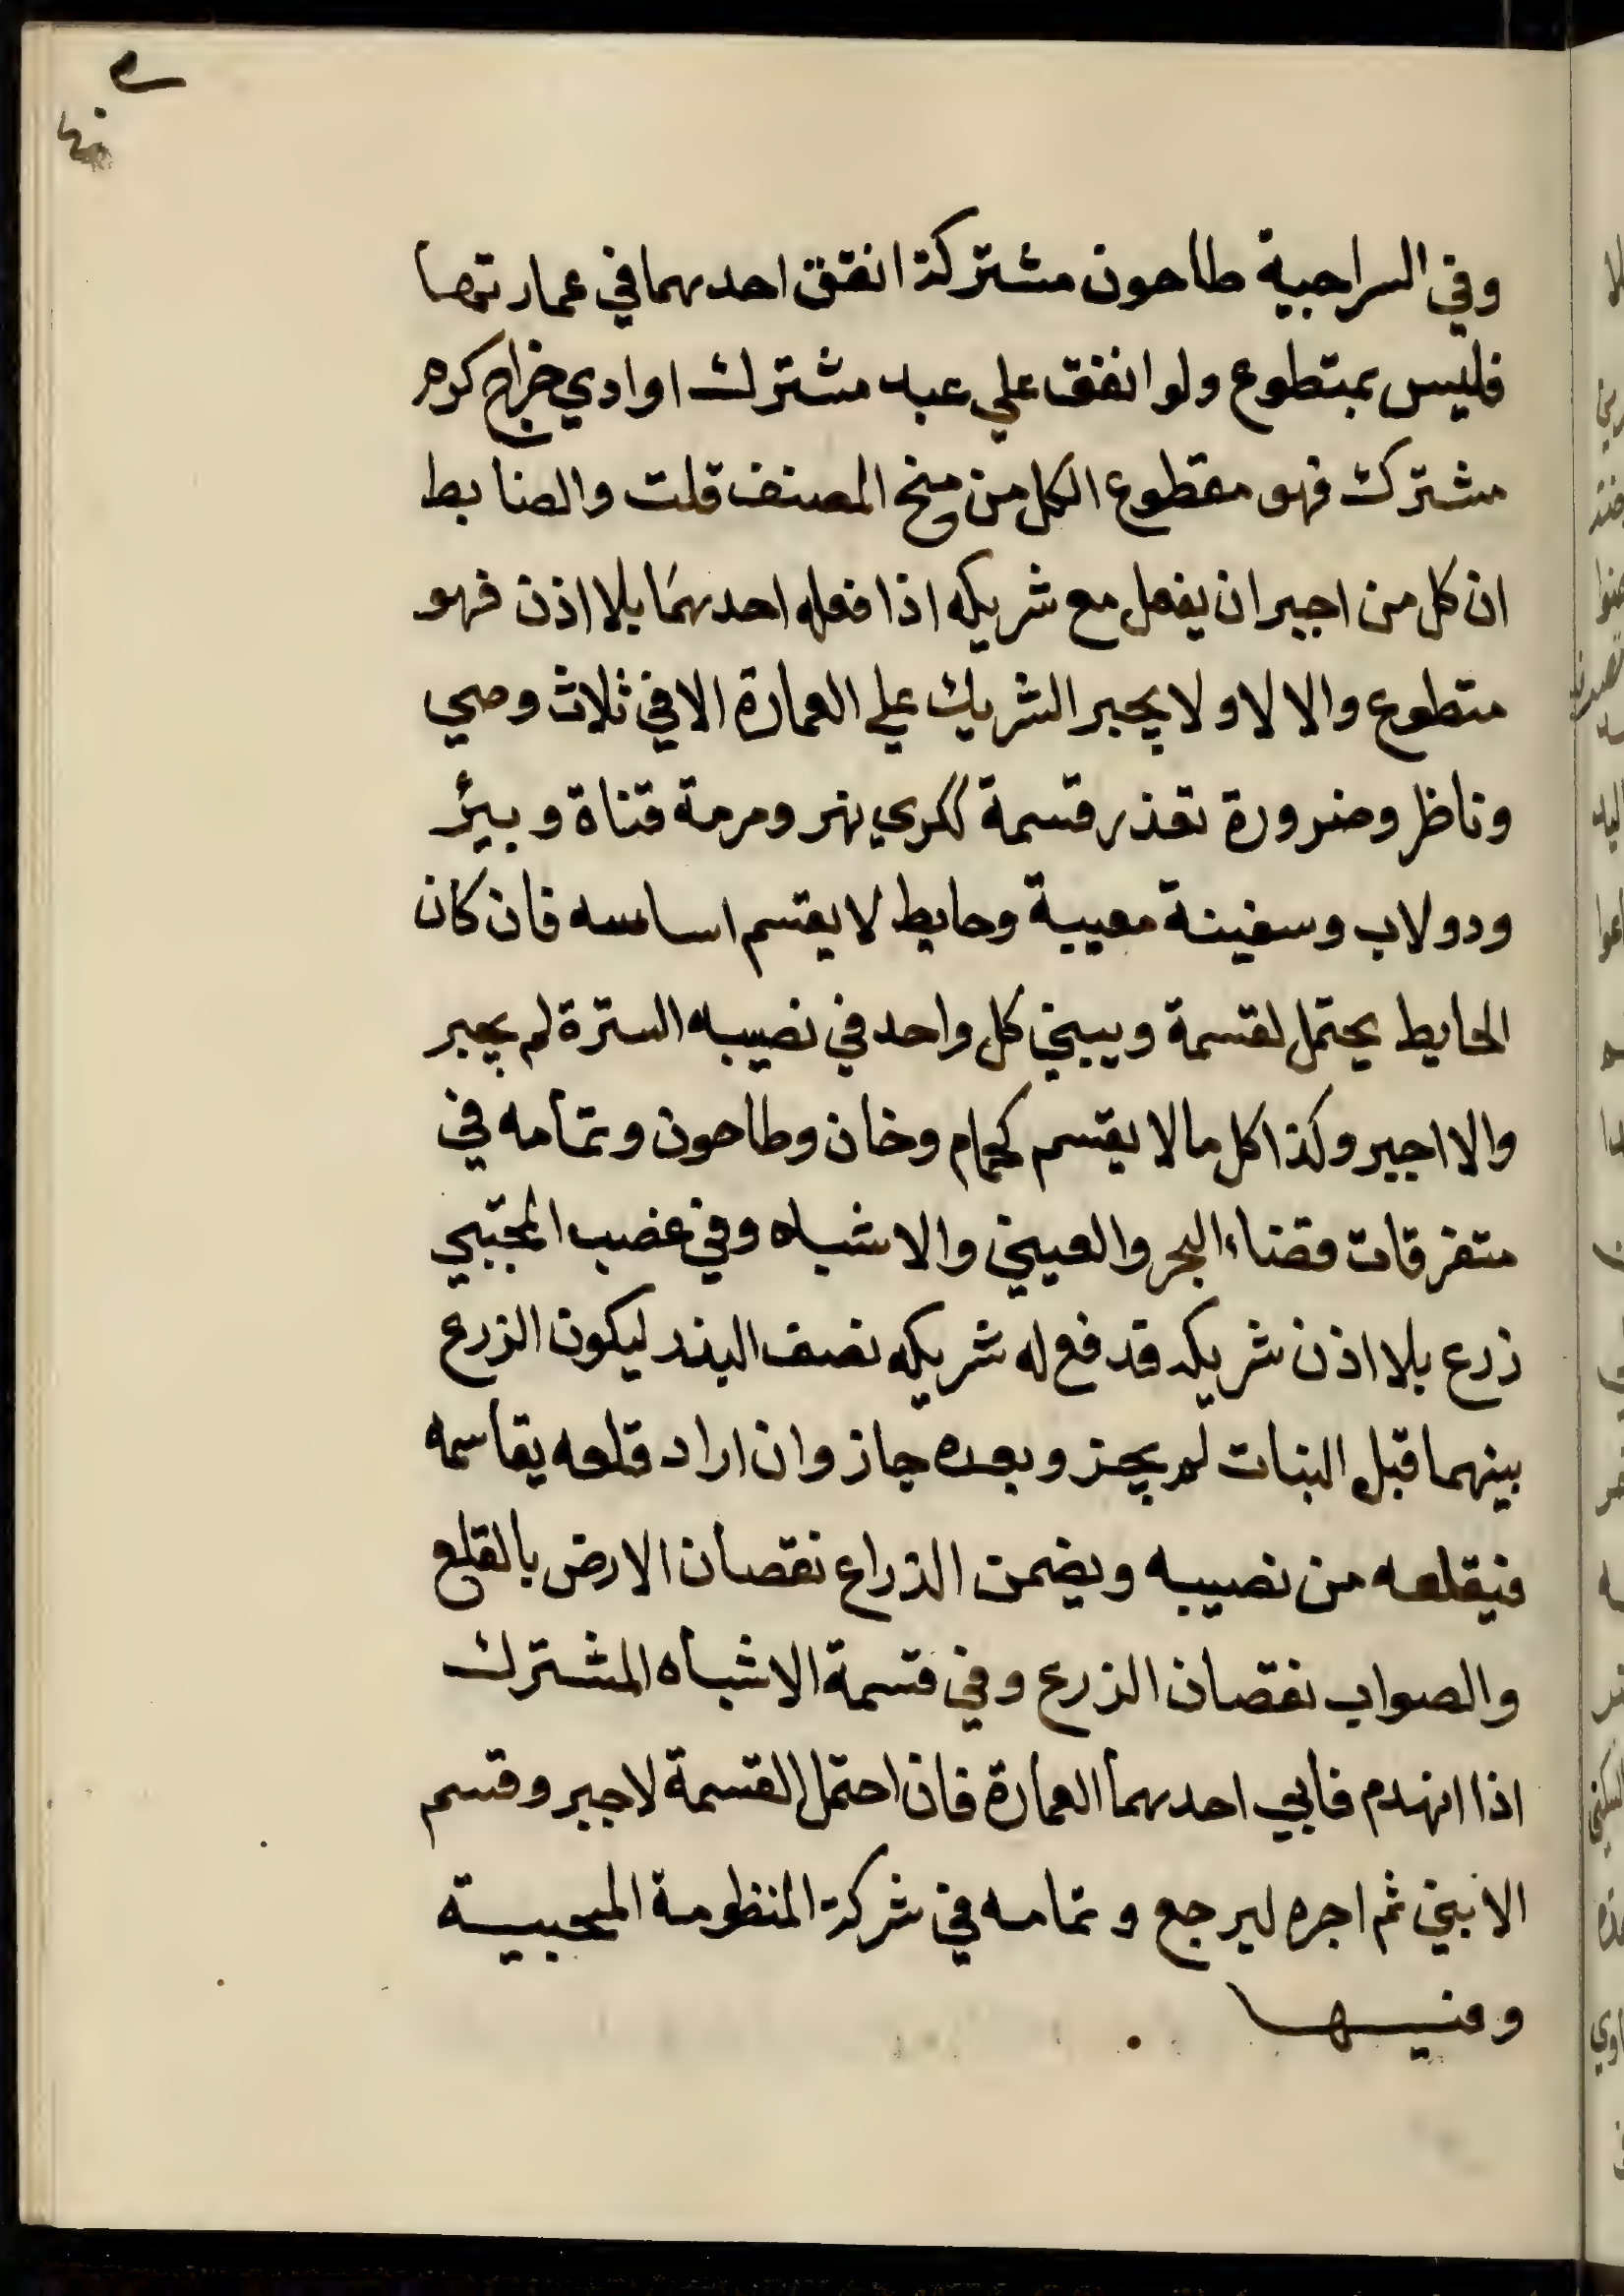 وفي السراجية طاحون مشتركة انفق احدهما في عمارتها
فليس بمتطوع ولو انفق علي عبد مشترك او ادي خراج كره
مشترك فهو مقطوع الكل من منح المصنف قلت والضابط
ان كل من اجبر ان يفعل مع شريكه اذا فعله احدهما بلا اذن فهو
متطوع والا لا ولا يجبر الشريك علي العمارة الا في ثلاث وصي
وناظر وضرورة تعذر قسمة ككري نهر ومرمة قناة وبيئر
ودولاب وسفينة معيبة وحايط لا يقسم اساسه فان كان
الحايط يحتمل لقسمة ويبني كل واحد في نصيبه السترة لم يجبر
والا اجبر وكذا كل ما لا يقسم كحمام وخان وطاحون وتمامه في
متفرقات قضاء البحر والعيني والاشباه وفي غصب المجتبي
زرع بلا اذن شريكه قد فع له شريكه نصف البذر ليكون الزرع
بينهما قبل النبات لم يجز وبعده جاز وان اراد قلعه يقاسمه
فيقلعه من نصيبه ويضمن الزراع نقصان الارض بالقلع
والصواب نقصان الزرع وفي قسمة الاشباه المشترك
اذا انهدم فابي احدهما العمارة فان احتمل القسمة لا جبر وقسم
الا بني ثم اجره ليرجع وتمامه في شركة المنظومة المحبية
وفيها